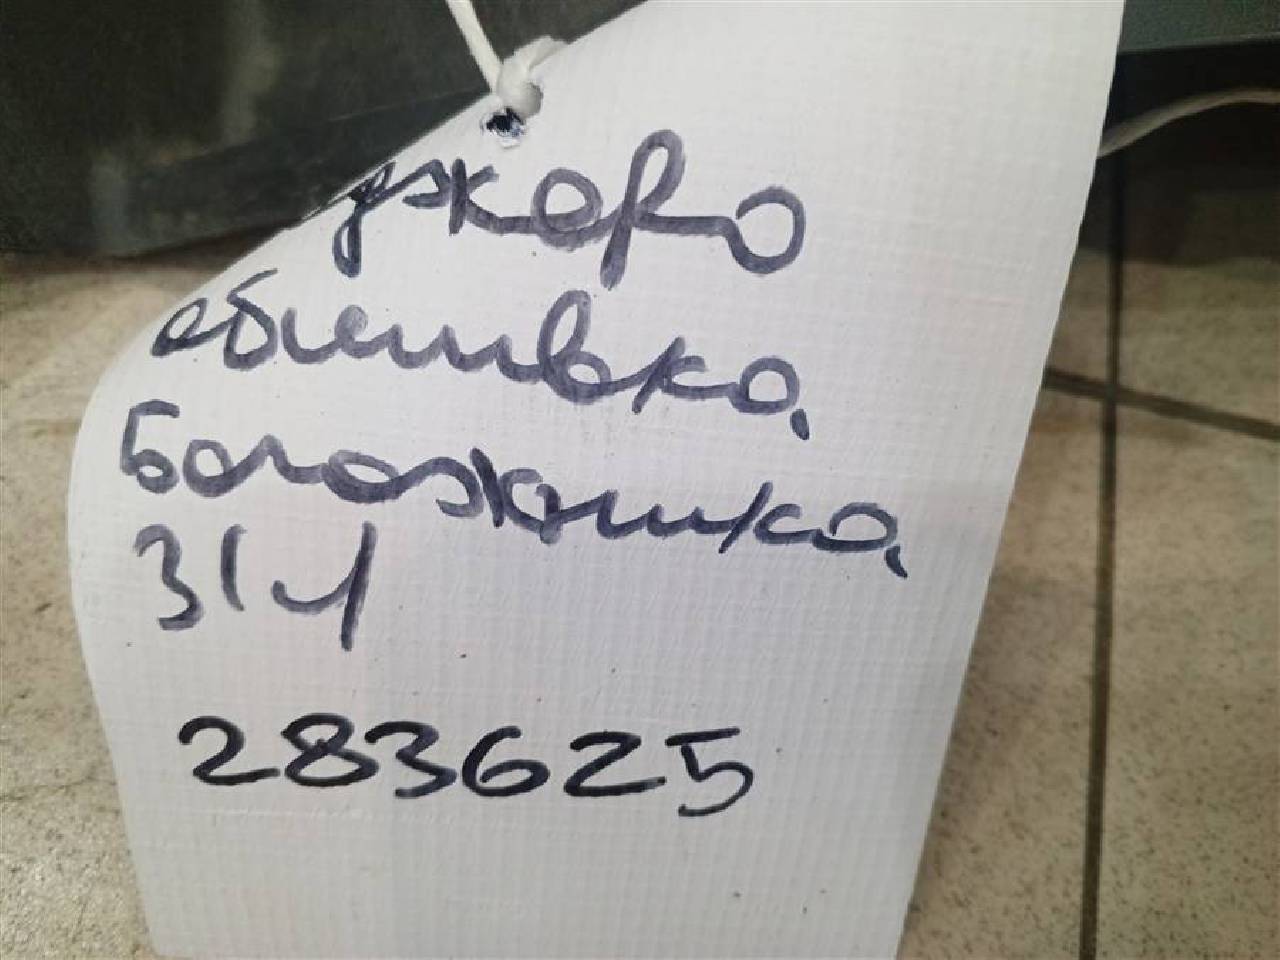 джоро
обшивка
багажника
з/л
283625